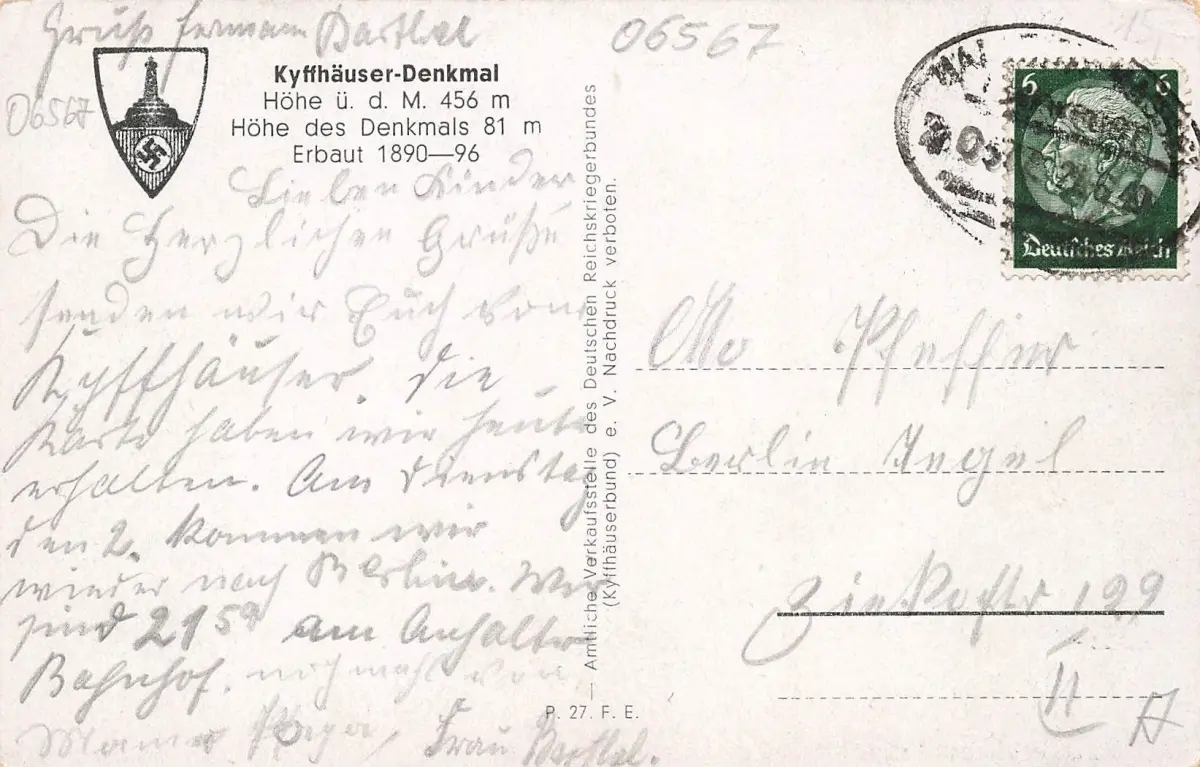 Gruß Herman Barthel
06567
06567
Kyffhäuser-Denkmal
Höhe ü. d. M. 456 m
Höhe des Denkmals 81 m
Erbaut 1890—96
Lieben Kinder
Die Herzlichen Grüße
senden wir Euch vom
Kyffhäuser. Die
Karte haben wir heute
erhalten. Am Dienstag
den 2. kommen wir
wieder nach Berlin. Wir
sind 21⁵⁰ am Anhalter
Bahnhof. nochmals von
Mama Papa, Frau Barthel.
— Amtliche Verkaufsstelle des Deutschen Reichskriegerbundes
(Kyffhäuserbund) e. V. Nachdruck verboten.
P. 27. F. E.
6 6
Deutsches Reich
Otto Pfeffer
Berlin Tegel
199
II